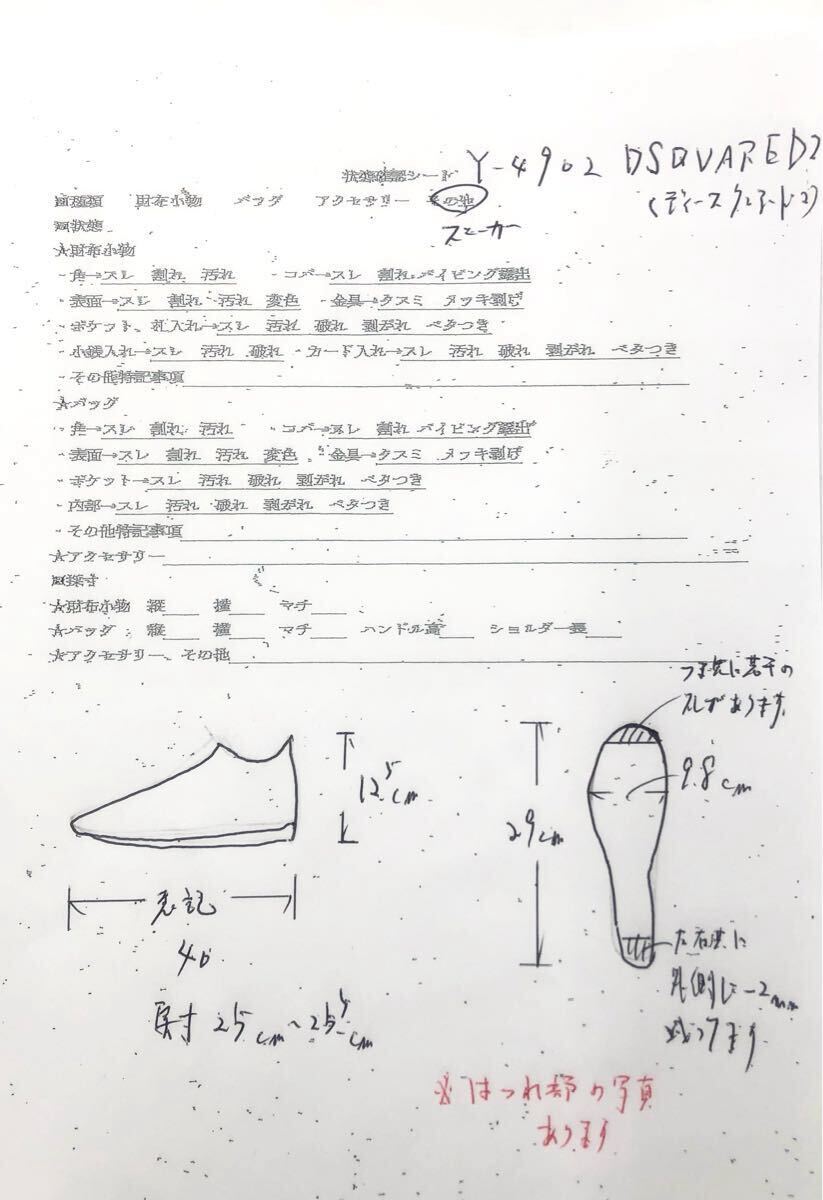 状態確認シート Y-4902 DSQUARED2
(ディースクエアード2)
■種類 財布小物 バッグ アクセサリー その他
スニーカー
■状態
★財布小物
・角→スレ 割れ 汚れ ・コバ→スレ 割れ パイピング露出
・表面→スレ 割れ 汚れ 変色 ・金具→クスミ メッキ剥げ
・ポケット、札入れ→スレ 汚れ 破れ 剥がれ ベタつき
・小銭入れ→スレ 汚れ 破れ ・カード入れ→スレ 汚れ 破れ 剥がれ ベタつき
・その他特記事項
★バッグ
・角→スレ 割れ 汚れ ・コバ→スレ 割れ パイピング露出
・表面→スレ 割れ 汚れ 変色 ・金具→クスミ メッキ剥げ
・ポケット→スレ 汚れ 破れ 剥がれ ベタつき
・内部→スレ 汚れ 破れ 剥がれ ベタつき
・その他特記事項
★アクセサリー
■採寸
★財布小物 縦 横 マチ
★バッグ 縦 横 マチ ハンドル高 ショルダー長
★アクセサリー、その他
つま先に若干の
スレがあります
12.5cm
29cm
9.8cm
表記
40
実寸 25cm~25.5cm
左右共に
外側に-2mm
減ってます
※ほつれ部の写真
あります